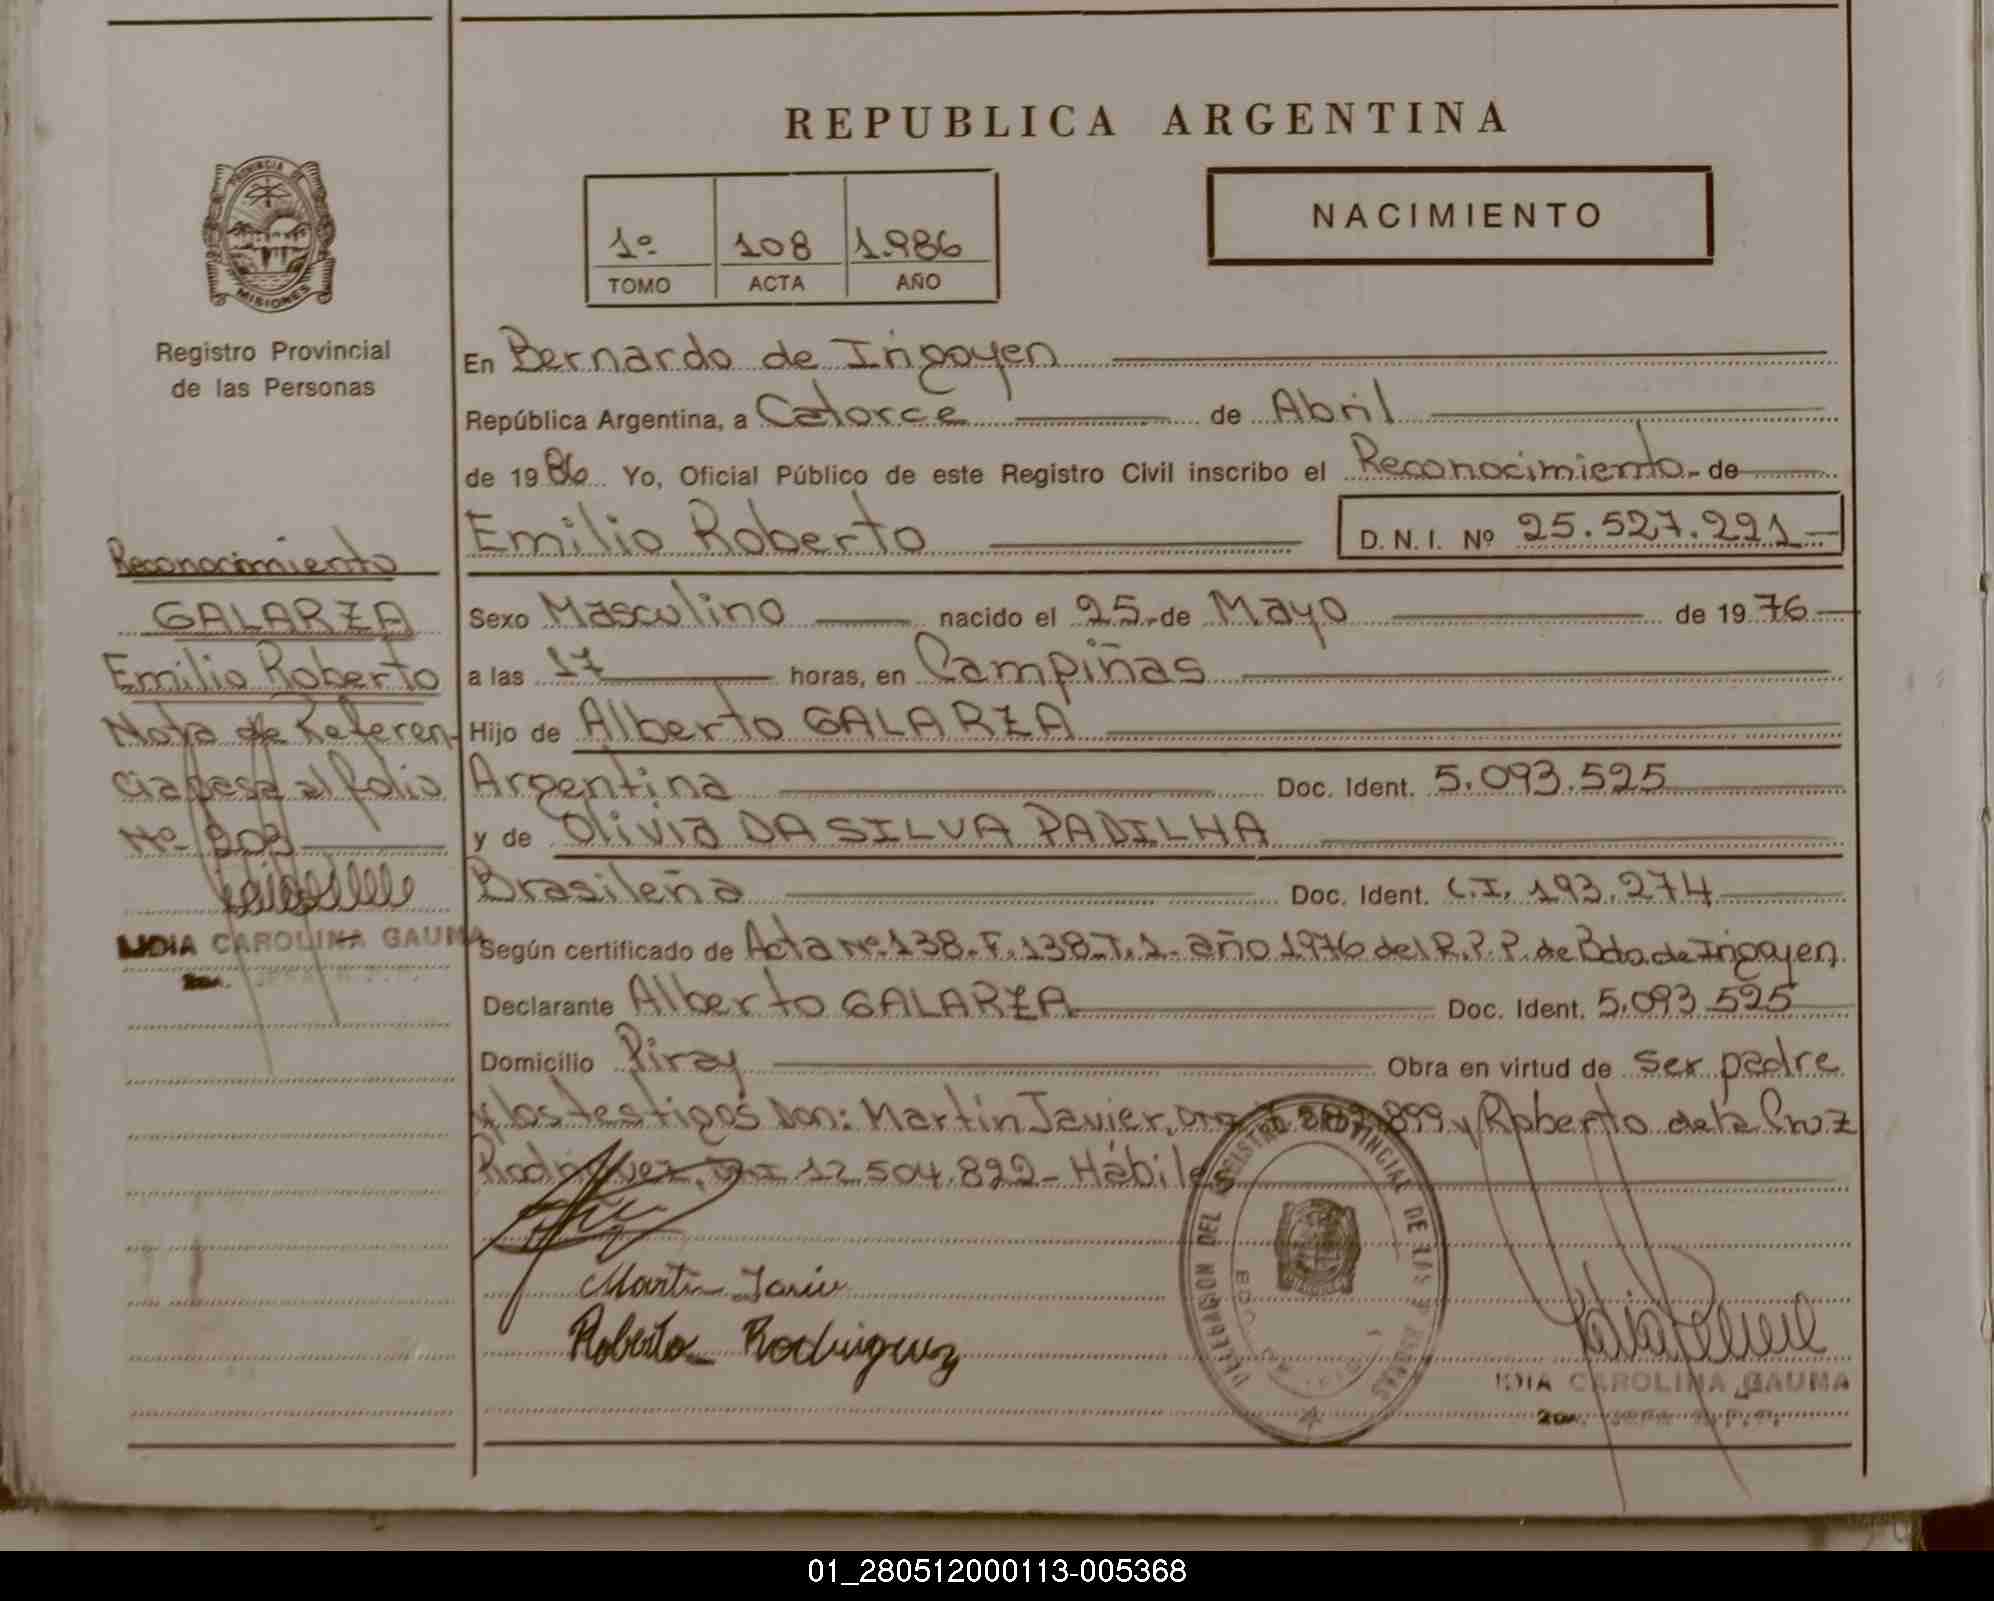 REPUBLICA ARGENTINA
NACIMIENTO
1º 108 1.986
TOMO ACTA AÑO
PROVINCIA DE
MISIONES
Registro Provincial
de las Personas
En Bernardo de Irigoyen
República Argentina, a Catorce de Abril
de 1986 Yo, Oficial Público de este Registro Civil inscribo el Reconocimiento- de
Emilio Roberto D. N. I. Nº 25.527.221
Sexo Masculino nacido el 25 de Mayo de 1976
a las 17 horas, en Campiñas
Hijo de Alberto GALARZA
Argentina Doc. Ident. 5.093.525
y de Olivia DA SILVA PADILHA
Brasileña Doc. Ident. C.I. 193.274
Según certificado de Acta Nº 138-F.138-T.1- año 1976 del R.P.P. de Bdo. de Irigoyen.
Declarante Alberto GALARZA Doc. Ident. 5.093.525
Domicilio Piray Obra en virtud de ser padre
y los testigos Don: Martín Javier, 899 y Roberto de la Cruz
Rodríguez, 12.504.892- Hábiles
Martin Javier
Roberto Rodriguez
LIDIA CAROLINA GAUNA
Reconocimiento
GALARZA
Emilio Roberto
Nota de Referen-
cia pasa al folio
Nº 203
LIDIA CAROLINA GAUNA
DELEGACION DEL REGISTRO PROVINCIAL DE LAS PERSONAS
01_280512000113-005368